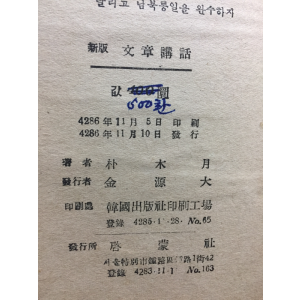 말리고 남북통일을 완수하자
新版 文章講話
값 圜
500환
4286年11月 5日 印刷
4286年11月10日 發行
著者 朴木月
發行者 金源大
印刷處 韓國出版社印刷工場
登錄 4285·1·28·No.65
發行所 啓蒙社
서울特別市鍾路區 路1街42
登錄 4283·11·1 No.163